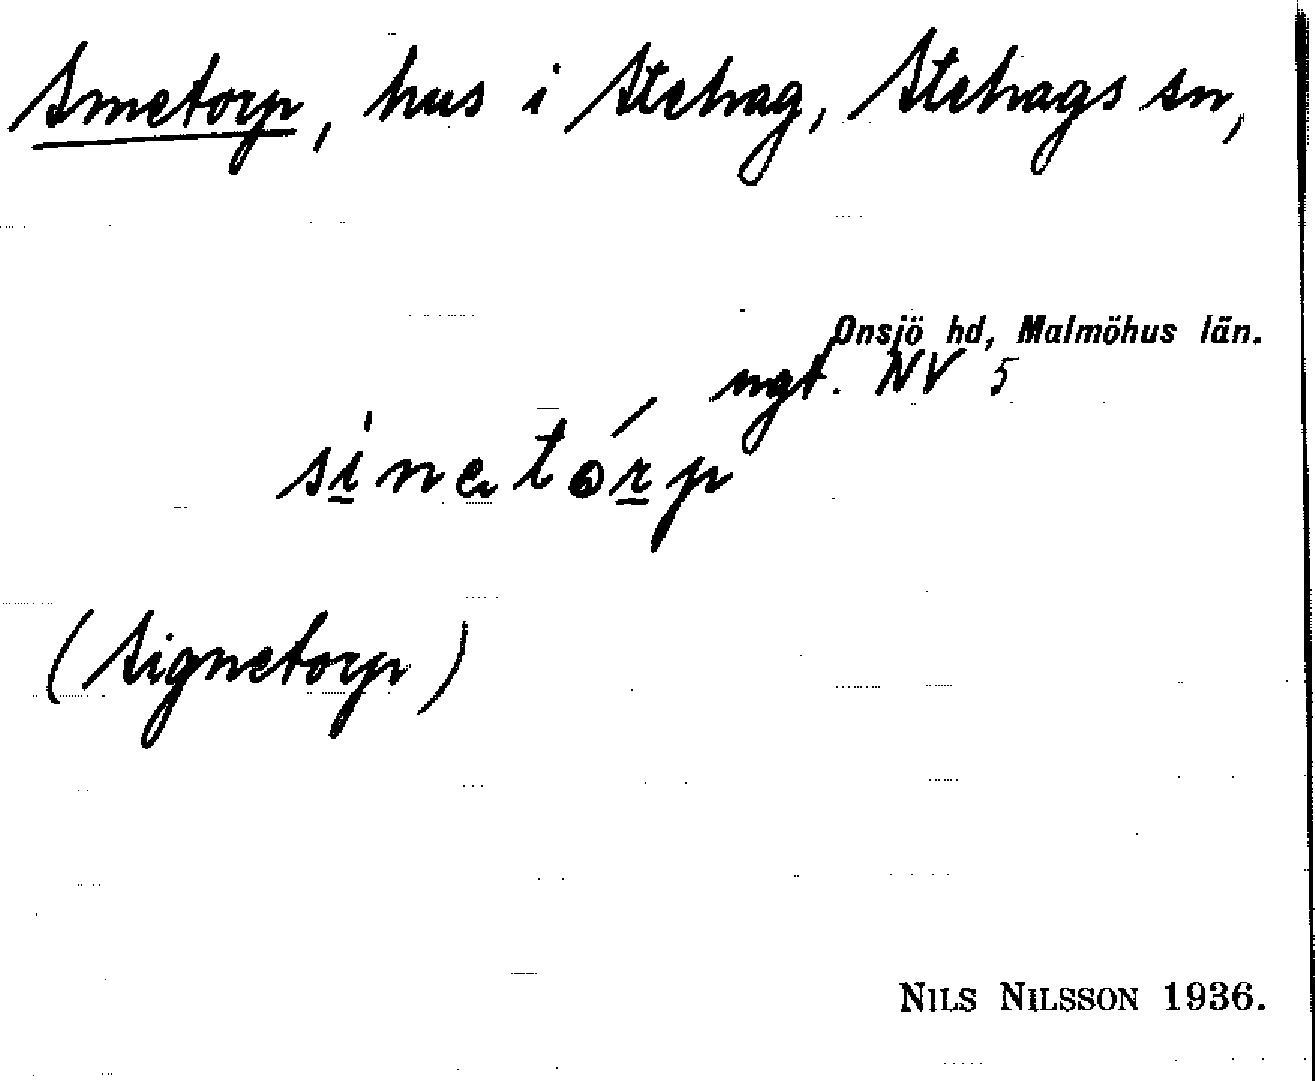 Sinetorp, hus i Stehag, Stehags sn,
Onsjö hd, Malmöhus län.
ngt. NV 5
sinetórp
(Signetorp)
NILS NILSSON 1936.